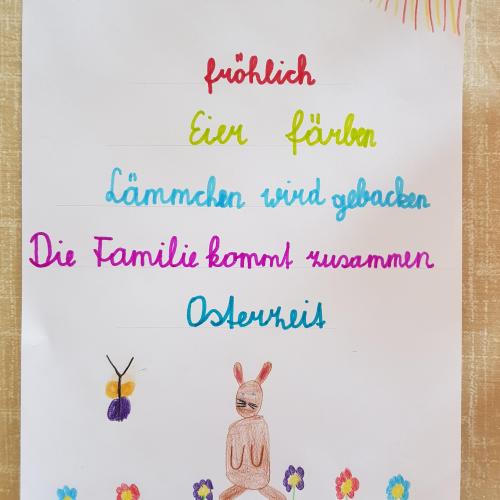 fröhlich
Eier färben
Lämmchen wird gebacken
Die Familie kommt zusammen
Osterzeit